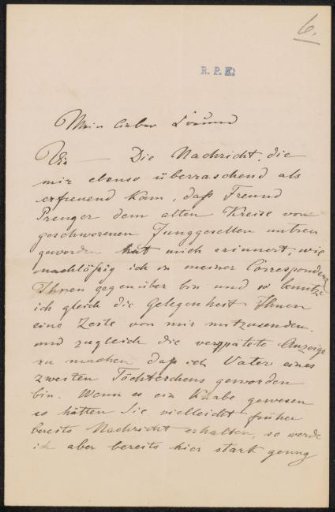 6.
R. P. K.
Mein lieber Freund
Die Nachricht, die
mir ebenso überraschend als
erfreuend kam, daß Freund
Prenger dem alten Kreise von
geschworenen Junggesellen untreu
geworden hat mich erinnert, wie
nachläßig ich in meiner Correspondenz
Ihnen gegenüber bin und so benutze
ich gleich die Gelegenheit Ihnen
eine Zeile von mir mitzusenden
und zugleich die verspätete Anzeige
zu machen daß ich Vater eines
zweiten Töchterchens geworden
bin. Wenn es ein Knabe gewesen
so hätten Sie vielleicht früher
bereits Nachricht erhalten, so werde
ich aber bereits hier stark genug